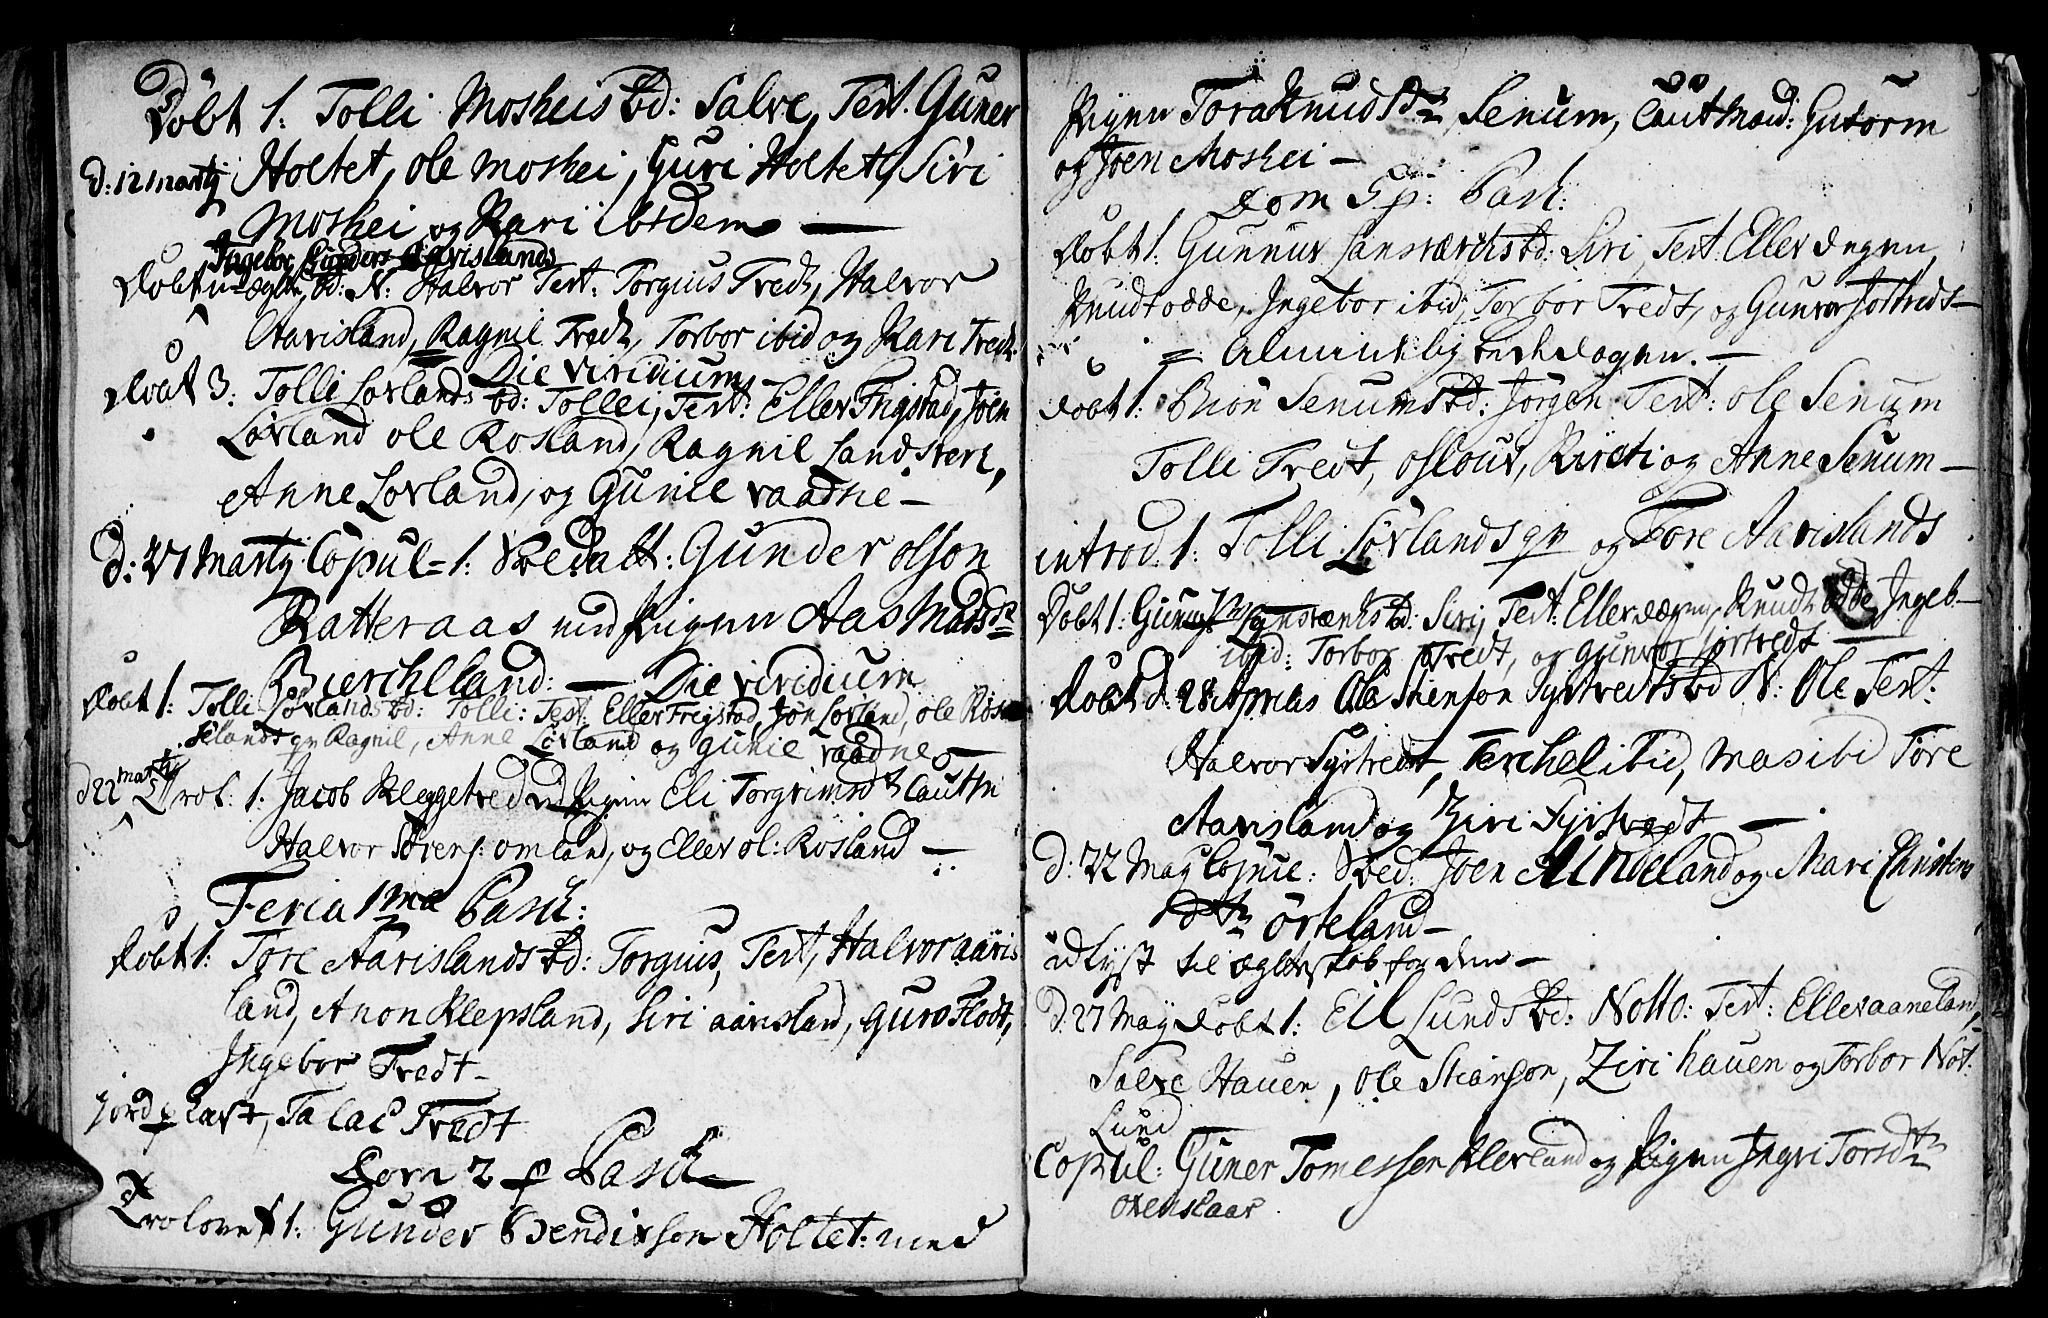 Döbt 1: Tolli Mosheis bd: Salve, Test. Guner
d: 12 martij Holtet, ole Moshei, Guri Holtet, Siri
Moshei og Kari ibidem
Ingebor Aarislands
Döbt bd: N: Halvor Test: Torgius Tredt, Halvor
Aarisland, Ragnil Tredt, Torbor ibid og Kari Tredt
Die viridium
Döbt 3: Tolli Lovlands bd: Tollei, Test: Ellev Frigstad, Joen
Lovland ole Rosland, Ragnil Landsverk,
Anne Lovland, og Gunil vaadne
d: 27 Martij Copul= 1: Gunder olson
Ratteraas med Pigen Aas Madsd
Bierchelland: Die viridium
Döbt 1: Tolli Lovlands bd: Tolli: Test: Ellev Frigstad, Jon Lovland, ole Ros
Ragnil, Anne Lovland og gunil vaadne
d 22 martij Trol: 1: Jacob Kleggetved Pigen Eli Torgrimsdt Cautin
Halvor Sörens: omland, og Ellev ol: Rosland
Feria 1ma Pasch:
Döbt 1: Tore Aarislands bd: Torgius, Test, Halvor aaris
land, Anon Klepsland, Siri aarisland, guro Flodt,
Ingebor Tredt
jord Talac Tredt
Dom 2 p Pasch
Trolovet 1: Gunder Bendixson Holtet: med
Pigen Tora Knudsd Senum, Caut Mænd: Gutorm
og Joen Moshei
Dom 5 p: Pasch:
Döbt 1: Gunnur Landsværchs bd: Siri, Test: Ellev Degen,
Knudt odde, Ingebor ibid, Torbor Tredt, og Gunvor
Almindelig Bededagen.
Döbt 1: Biön Senums bd: Jörgen Test: ole Senum
Tolli Tredt, oslour, Kirsti og Anne Senum
introd: 1: Tolli Lovlands qv og Tore Aarislands
Döbt 1: Lansværks bd: Siri, Test: Ellev dægen, Knudt odde, Ingeb
ibid: Torbor Tredt, og gunvor
Döbt d. 28 Ole Stienson bd N: Ole Test:
Halvor Terchel ibid, Mas ibi Tore
Aarisland og Ziri
D: 22 May Copul: Joen og Mari Christens
dtr Örteland
udlyst til ægteskab for dem
D. 27 May döbt 1: Eil Lunds bd: Notto: Test: Ellev aaneland,
Salve Hauen, ole Stianson, Ziri hauen og Torbor Not:
Lund
Copul: Guner Tomessen Klevland og Pigen Ingri Torsdtr
oxenslaar